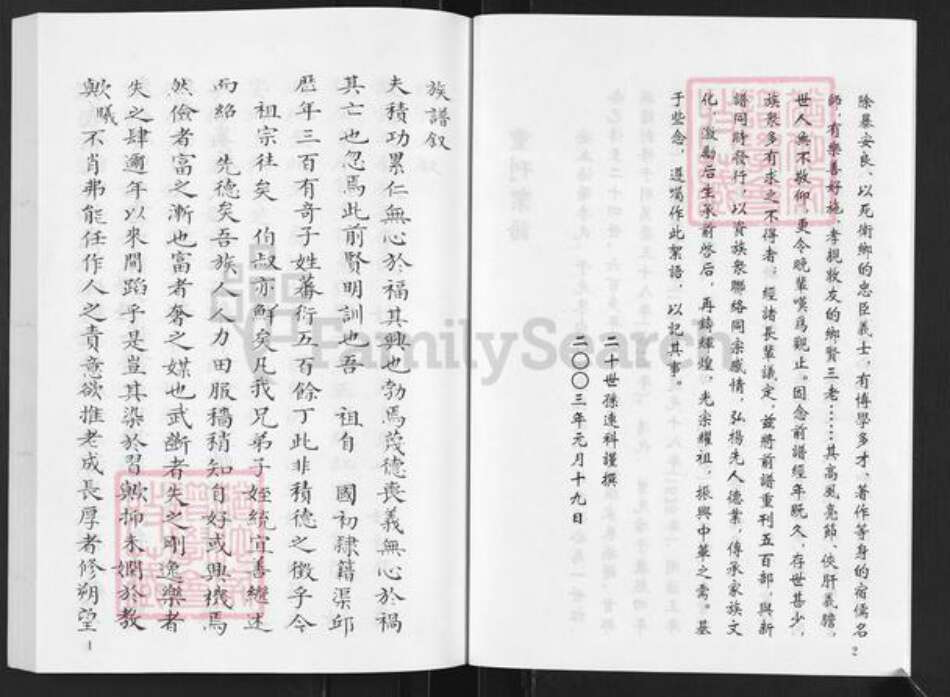 除暴安良、以死衛鄉的忠臣義士，有博學多才、著作等身的宿儒名
師，有樂善好施、孝親敦友的鄉賢三老……其高風亮節、俠肝義膽，
世人無不敬仰，更令晚輩嘆爲觀止。因念前譜經年既久，存世甚少，
族衆多有求之不得者，經諸長輩議定，兹將前譜重刊五百部，與新
譜同時發行，以資族衆聯絡同宗感情，弘揚先人德業，傳承家族文
化，激勵后生承前啓后，再鑄輝煌，光宗耀祖，振興中華之需。基
于些念，遵囑作此絮語，以記其事。
二十世孫連科謹撰
二〇〇三年元月十九日
2
族譜叙
夫積功累仁無心於福其興也勃焉蔑德喪義無心於禍
其亡也忽焉此前賢明訓也吾 祖自 國初隸籍渠邱
歷年三百有奇子姓蕃衍五百餘丁此非積德之徵乎今
祖宗往矣 伯叔亦鮮矣凡我兄弟子姪統宜善繼述
而紹 先德矣吾族人人力田服穡稍知自好或興機焉
然儉者富之漸也富者奢之媒也武斷者失之剛逸樂者
失之肆邇年以來間蹈乎是豈其染於習歟抑未嫻於教
歟曦不肖弗能任作人之責意欲推老成長厚者修朔望
1
FamilySearch